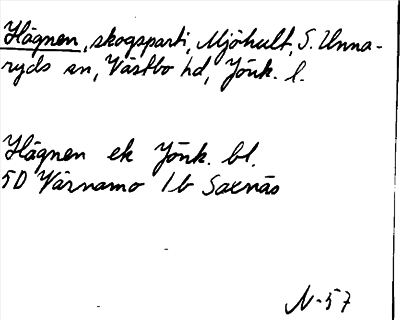 Hägnen, skogsparti, Mjöhult, S. Unna-
ryds sn, Västbo hd, Jönk. l.
Hägnen ek Jönk. bl.
5D Värnamo 1b Saxnäs
N-57